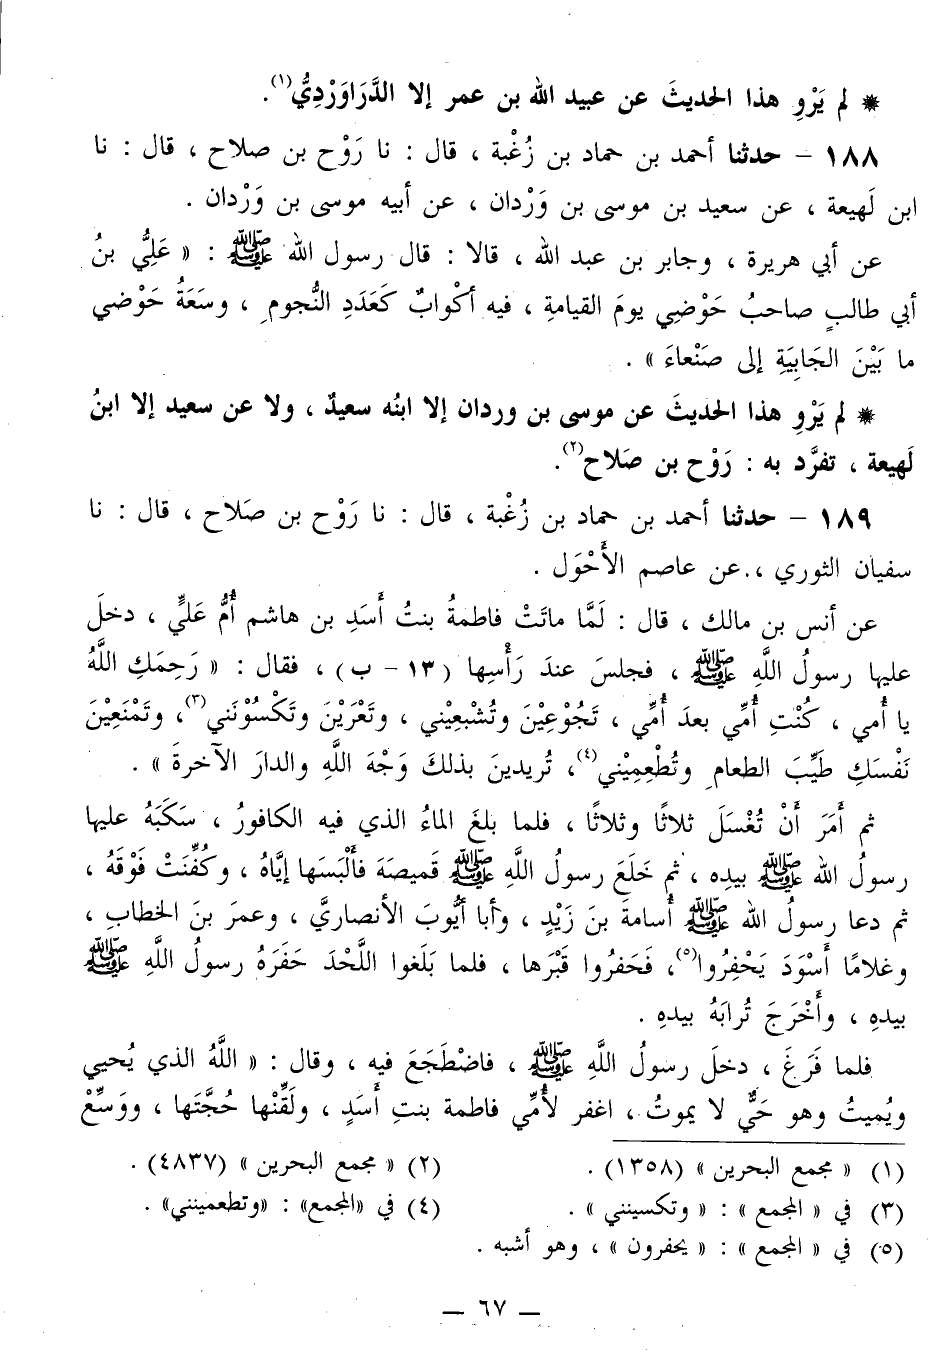 * لم يَرْوِ هذا الحديثَ عن عبيد الله بن عمر إلا الدَّرَاوَرْدِيُّ(١).
١٨٨ - حدثنا أحمد بن حماد بن زُغْبة ، قال : نا رَوْح بن صلاح ، قال : نا
ابن لَهيعة ، عن سعيد بن موسى بن وَرْدان ، عن أبيه موسى بن وَرْدان .
عن أبي هريرة ، وجابر بن عبد الله ، قالا : قال رسول الله ﷺ : « عَلِيُّ بنُ
أبي طالبٍ صاحبُ حَوْضِي يومَ القيامةِ ، فيه أكْوابٌ كَعَدَدِ النُّجومِ ، وسَعَةُ حَوْضي
ما بَيْنَ الجَابِيَةِ إلى صَنْعاءَ » .
* لم يَرْوِ هذا الحديثَ عن موسى بن وردان إلا ابنُه سعيدٌ ، ولا عن سعيد إلا ابنُ
لَهيعة ، تفرَّد به : رَوْح بن صَلاح(٢).
١٨٩ - حدثنا أحمد بن حماد بن زُغْبة ، قال : نا رَوْح بن صَلاح ، قال : نا
سفيان الثوري ، عن عاصم الأَحْوَل .
عن أنس بن مالك ، قال : لَمَّا ماتَتْ فاطمةُ بنتُ أَسَدِ بن هاشم أُمُّ عَليٍّ ، دخلَ
عليها رسولُ اللَّهِ ﷺ ، فجلسَ عندَ رَأْسِها (١٣ - ب) ، فقال : « رَحِمَكِ اللَّهُ
يا أُمي ، كُنْتِ أُمِّي بعدَ أُمِّي ، تَجُوْعِيْنَ وتُشْبعِيْني ، وتَعْرَيْنَ وتَكْسُوْنَني(٣)، وتَمْنَعِيْنَ
نَفْسَكِ طَيِّبَ الطعامِ وتُطْعِمِيْني(٤)، تُريدينَ بذلكَ وَجْهَ اللَّهِ والدارَ الآخرةَ » .
ثم أَمَرَ أَنْ تُغْسَلَ ثلاثًا وثلاثًا ، فلما بلغَ الماءُ الذي فيه الكافورُ ، سَكَبَهُ عليها
رسولُ الله ﷺ بيدِه ، ثم خَلَعَ رسولُ اللَّهِ ﷺ قَميصَهَ فأَلْبَسَها إيَّاهُ ، وكُفِّنَتْ فَوْقَهُ ،
ثم دعا رسولُ الله ﷺ أُسامةَ بنَ زَيْدٍ ، وأبا أيُّوبَ الأنصاريَّ ، وعمرَ بنَ الخطابِ ،
وغلامًا أَسْوَدَ يَحْفِرُوا(٥)، فَحَفرُوا قَبْرَها ، فلما بَلَغوا اللَّحْدَ حَفَرَهُ رسولُ اللَّهِ ﷺ
بيدهِ ، وأَخْرَجَ تُرابَهُ بيدهِ .
فلما فَرَغَ ، دخلَ رسولُ اللَّهِ ﷺ ، فاضْطَجَعَ فيه ، وقال : « اللَّهُ الذي يُحيي
ويُميتُ وهو حَيٌّ لا يموتُ ، اغفر لأُمِّي فاطمة بنتِ أَسَدٍ ، ولَقِّنْها حُجَّتَها ، ووَسِّعْ
(١) « مجمع البحرين » (١٣٥٨) .
(٢) « مجمع البحرين » (٤٨٣٧) .
(٣) في « المجمع » : « وتكسينني » .
(٤) في «المجمع» : «وتطعمينني» .
(٥) في « المجمع » : « يحفرون » ، وهو أشبه .
— ٦٧ —